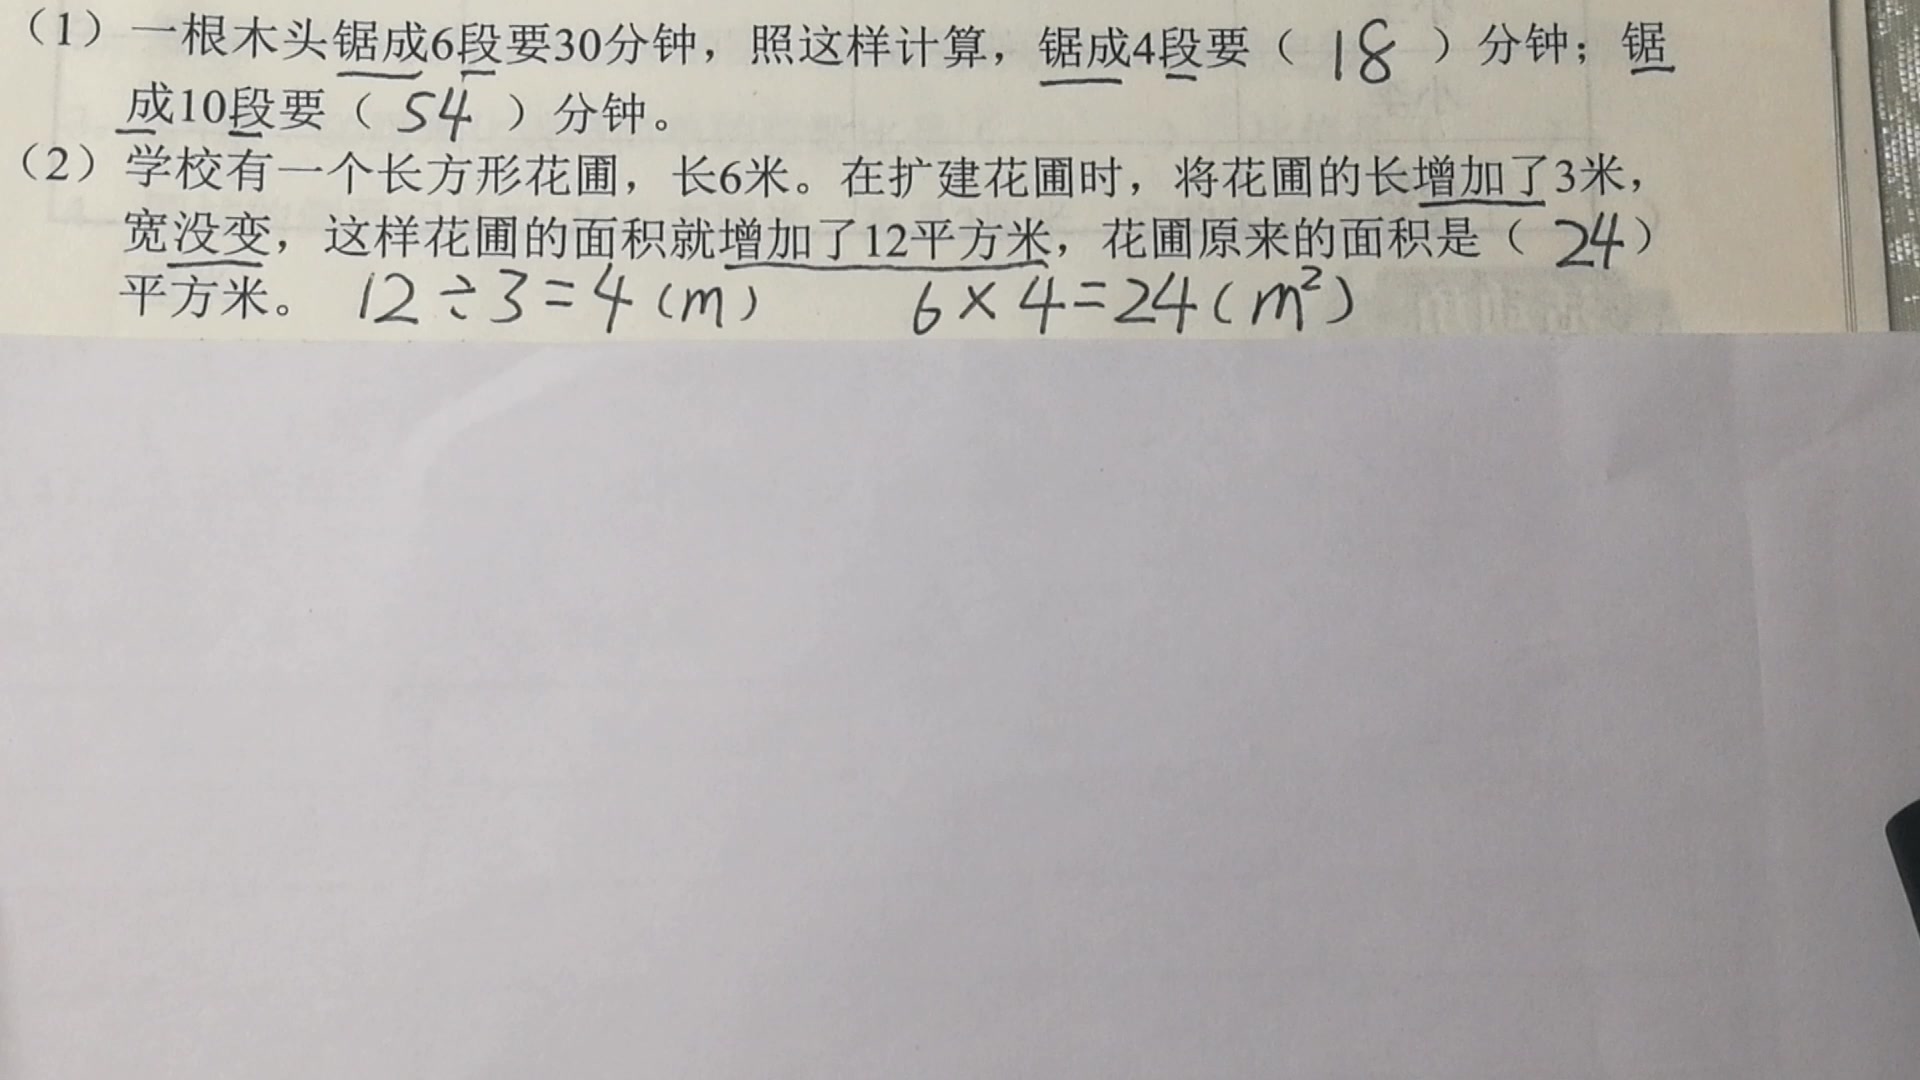 （1）一根木头锯成6段要30分钟，照这样计算，锯成4段要（ 18 ）分钟；锯
成10段要（ 54 ）分钟。
（2）学校有一个长方形花圃，长6米。在扩建花圃时，将花圃的长增加了3米，
宽没变，这样花圃的面积就增加了12平方米，花圃原来的面积是（ 24 ）
平方米。 12÷3=4(m) 6×4=24(m²)